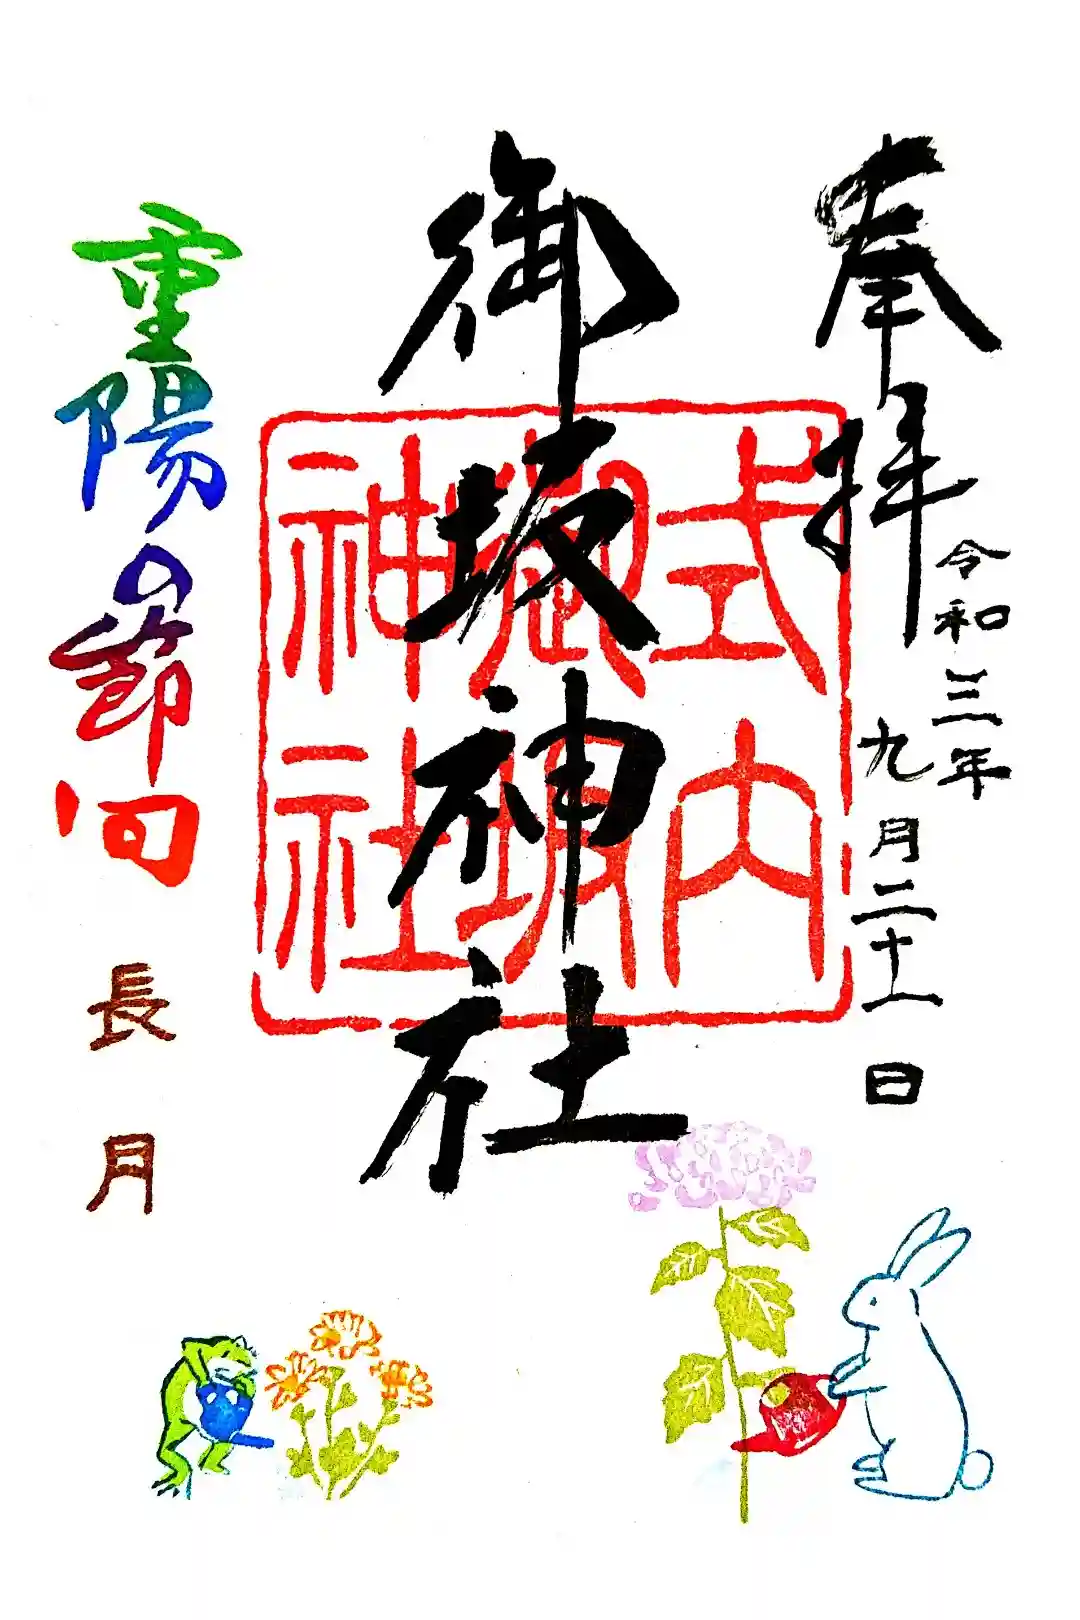 奉拝
令和三年
九月二十一日
御坂神社
式内
御坂
神社
重陽の節句
長月